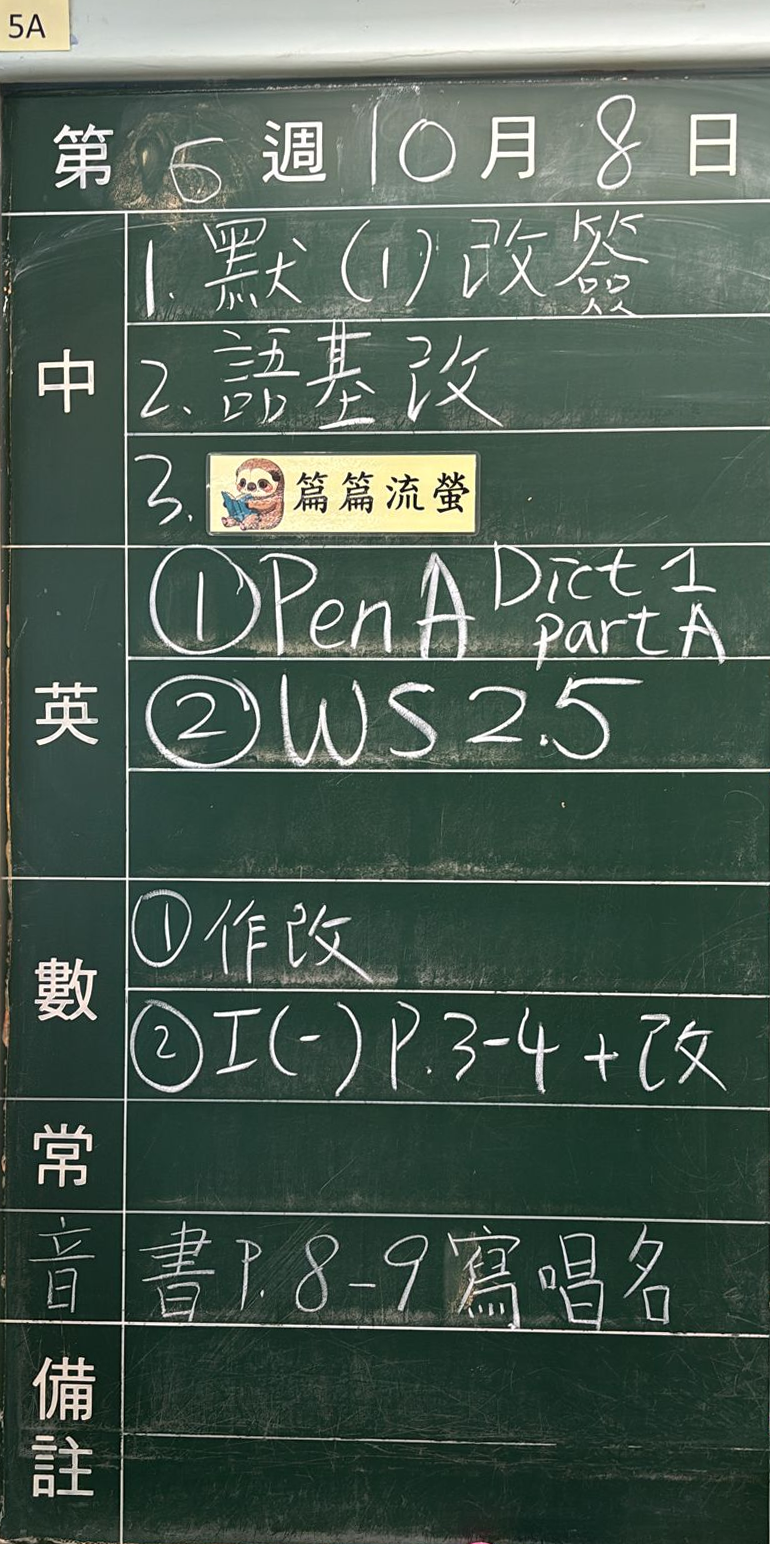 5A
第 6 週 10 月 8 日
中
1. 默(1)改簽
2. 語基改
3. 篇篇流螢
英
① Pen A Dict 1 part A
② WS 2.5
數
① 作改
② I(一) P.3-4 + 改
常
音 書 P. 8-9 寫唱名
備註